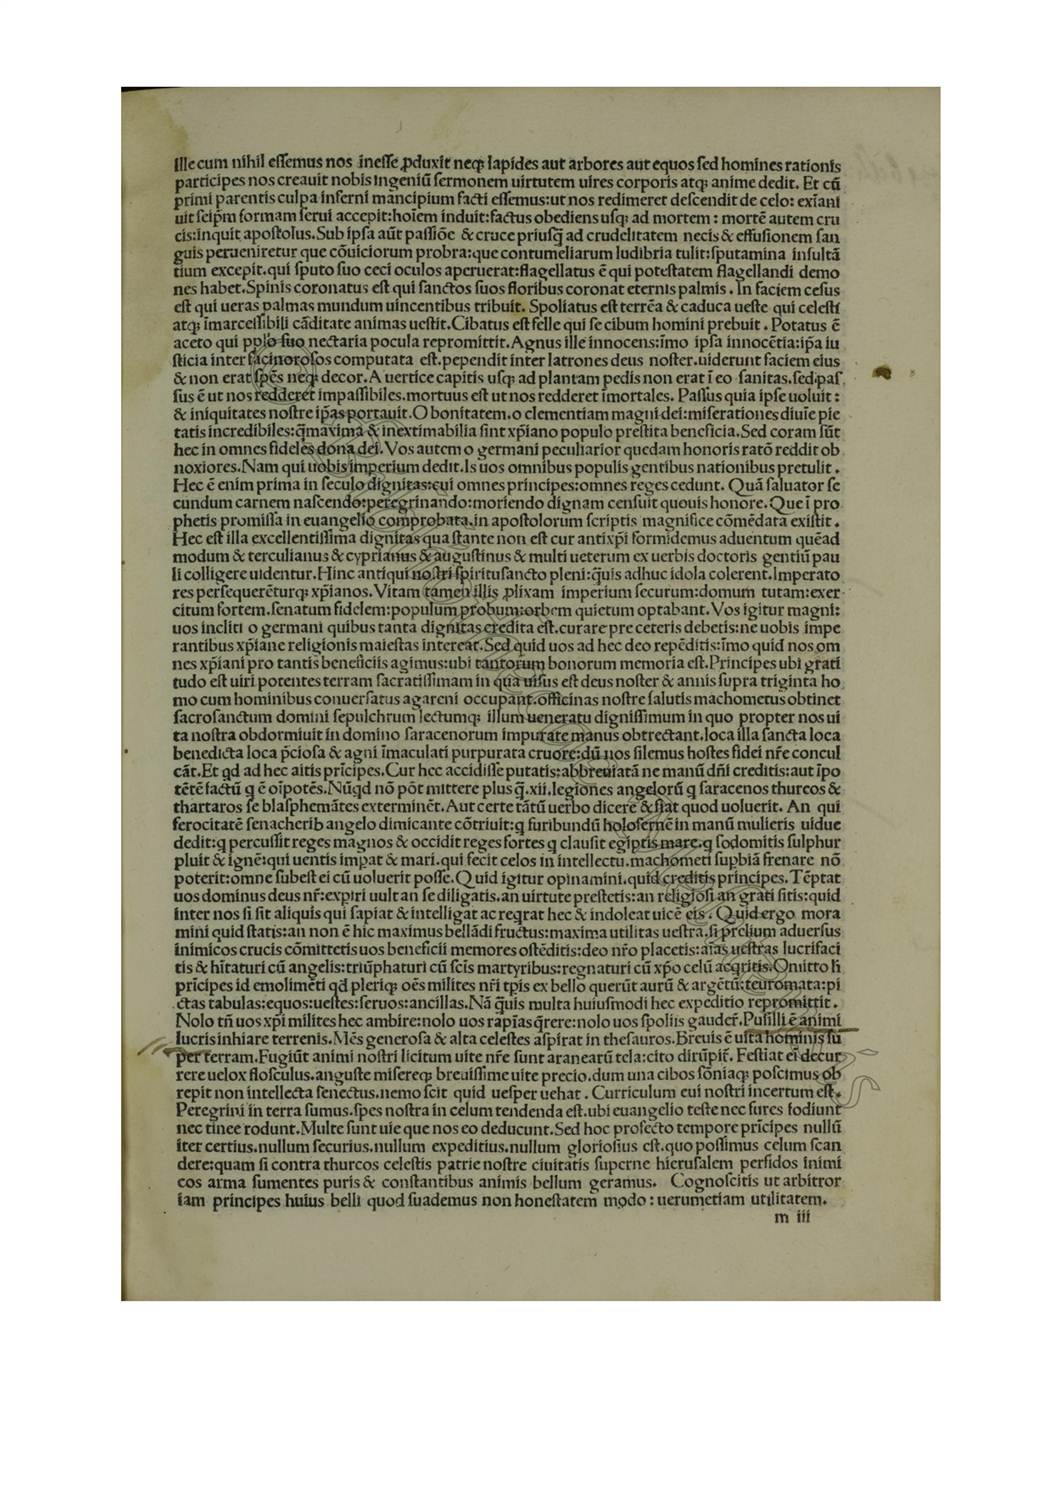 Ille cum nihil eſſemus nos īneſſe ꝓduxit neqꝫ lapides aut arbores aut equos ſed homines rationis
participes nos creauit nobis ingeniū ſermonem uirtutem uires corporis atqꝫ anime dedit. Et cū
primi parentis culpa inferni mancipium facti eſſemus:ut nos redimeret deſcendit de celo: exīani
uit ſeip̄m formam ſerui accepit:hoīem induit:factus obediens uſqꝫ ad mortem : mortē autem cru
cis:inquit apoſtolus. Sub ipſa aūt paſſiōe & cruce priuſq̄ ad crudelitatem necis & effuſionem ſan
guis perueniretur que cōuiciorum probra:que contumeliarum ludibria tulit:ſputamina inſultā
tium excepit. qui ſputo ſuo ceci oculos aperuerat:flagellatus ē qui poteſtatem flagellandi demo
nes habet. Spinis coronatus eſt qui ſanctos ſuos floribus coronat eternis palmis . In faciem ceſus
eſt qui ueras palmas mundum uincentibus tribuit. Spoliatus eſt terrēa & caduca ueſte qui celeſti
atqꝫ īmarceſſibili cāditate animas ueſtit. Cibatus eſt felle qui ſe cibum homini prebuit . Potatus ē
aceto qui pplo ſuo nectaria pocula repromittit. Agnus ille innocens:īmo ipſa innocētia:ip̄a iu
ſticia inter facinoroſos computata eſt. pependit inter latrones deus noſter. uiderunt faciem eius
& non erat ſpēs neqꝫ decor. A uertice capitis uſqꝫ ad plantam pedis non erat ī eo ſanitas. ſed paſ
ſus ē ut nos redderet impaſſibiles. mortuus eſt ut nos redderet īmortales. Paſſus quia ipſe uoluit :
& iniquitates noſtre ip̄as portauit. O bonitatem. o clementiam magni dei: miſerationes diuīe pie
tatis incredibiles:q̄maxima & inextimabilia ſint xp̄iano populo preſtita beneficia. Sed coram ſūt
hec in omnes fideles dona dei. Vos autem o germani peculiarior quedam honoris ratō reddit ob
noxiores. Nam qui uobis imperium dedit. Is uos omnibus populis gentibus nationibus pretulit .
Hec ē enim prima in ſeculo dignitas:cui omnes principes:omnes reges cedunt. Quā ſaluator ſe
cundum carnem naſcendo:peregrinando:moriendo dignam cenſuit quouis honore. Que ī pro
phetis promiſſa in euangelio comprobata. in apoſtolorum ſcriptis magnifice cōmēdata exiſtit .
Hec eſt illa excellentiſſima dignitas qua ſtante non eſt cur antixp̄i formidemus aduentum quēad
modum & terculianus & cyprianus & auguſtinus & multi ueterum ex uerbis doctoris gentiū pau
li colligere uidentur. Hinc antiqui noſtri ſpirituſancto pleni:q̄uis adhuc idola colerent. Imperato
res perſequerēturqꝫ xp̄ianos. Vitam tamen illis ꝓlixam imperium ſecurum:domum tutam:exer
citum fortem. ſenatum fidelem:populum probum:orbem quietum optabant. Vos igitur magni:
uos incliti o germani quibus tanta dignitas credita eſt. curare pre ceteris debetis:ne uobis impe
rantibus xp̄iane religionis maieſtas intereat. Sed quid uos ad hec deo repēditis:īmo quid nos om
nes xp̄iani pro tantis beneficiis agimus:ubi tantorum bonorum memoria eſt. Principes ubi grati
tudo eſt uiri potentes terram ſacratiſſimam in qua uiſus eſt deus noſter & annis ſupra triginta ho
mo cum hominibus conuerſatus agareni occupant. officinas noſtre ſalutis machometus obtinet
ſacroſanctum domini ſepulchrum lectumqꝫ illum ueneratu digniſſimum in quo propter nos ui
ta noſtra obdormiuit in domino ſaracenorum impurate manus obtrectant. loca illa ſancta loca
benedicta loca p̄cioſa & agni īmaculati purpurata cruore:dū nos ſilemus hoſtes fidei nr̄e concul
cāt. Et qd ad hec aitis prīcipes. Cur hec accidiſſe putatis:abbreuiatā ne manū dn̄i creditis:aut īpo
tētē factū q ē oīpotēs. Nūqd nō pōt mittere plus q̄. xii. legiones angelorū q ſaracenos thurcos &
thartaros ſe blaſphemātes exterminēt. Aut certe tātū uerbo dicere & fiat quod uoluerit. An qui
ferocitatē ſenacherib angelo dimicante cōtriuit:q furibundū holofernē in manū mulieris uidue
dedit:q percuſſit reges magnos & occidit reges fortes q clauſit egiptis mare. q ſodomitis ſulphur
pluit & ignē:qui uentis impat & mari. qui fecit celos in intellectu. machometi ſupbiā frenare nō
poterit:omne ſubeſt ei cū uoluerit poſſe. Quid igitur opinamini. quid creditis principes. Tēptat
uos dominus deus nr̄:expiri uult an ſe diligatis. an uirtute preſtetis:an religioſi an grati ſitis:quid
inter nos ſi ſit aliquis qui ſapiat & intelligat ac reqrat hec & indoleat uicē eis . Quid ergo mora
mini quid ſtatis:an non ē hic maximus bellādi fructus:maxima utilitas ueſtra. ſi prelium aduerſus
inimicos crucis cōmittetis uos beneficii memores oſtēditis:deo nr̄o placetis:aīas ueſtras lucrifaci
tis & hītaturi cū angelis:triūphaturi cū ſcīs martyribus:regnaturi cū xp̄o celū acqritis. Omitto li
prīcipes id emolimēti qd pleriqꝫ oēs milites nr̄i tp̄is ex bello querūt aurū & argētū:teuromata:pi
ctas tabulas:equos:ueſtes:ſeruos:ancillas. Nā q̄uis multa huiuſmodi hec expeditio repromittit .
Nolo tn̄ uos xp̄i milites hec ambire:nolo uos rapīas q̄rere:nolo uos ſpoliis gauder̄. Puſilli ē animi
lucris inhiare terrenis. Mēs generoſa & alta celeſtes aſpirat in theſauros. Breuis ē uita hominis ſu
per terram. Fugiūt animi noſtri licitum uite nr̄e ſunt aranearū tela:cito dirūpit̄. Feſtiat ei decur
rere uelox floſculus. anguſte miſereqꝫ breuiſſime uite precio. dum una cibos ſōniaqꝫ poſcimus ob
repit non intellecta ſenectus. nemo ſcit quid ueſper uehat . Curriculum eui noſtri incertum eſt.
Peregrini in terra ſumus. ſpes noſtra in celum tendenda eſt. ubi euangelio teſte nec fures fodiunt
nec tinee rodunt. Multe ſunt uie que nos eo deducunt. Sed hoc profecto tempore prīcipes nullū
iter certius. nullum ſecurius. nullum expeditius. nullum glorioſius eſt. quo poſſimus celum ſcan
dere:quam ſi contra thurcos celeſtis patrie noſtre ciuitatis ſuperne hieruſalem perfidos inimi
cos arma ſumentes puris & conſtantibus animis bellum geramus. Cognoſcitis ut arbitror
iam principes huius belli quod ſuademus non honeſtatem modo : uerumetiam utilitatem.
m iii